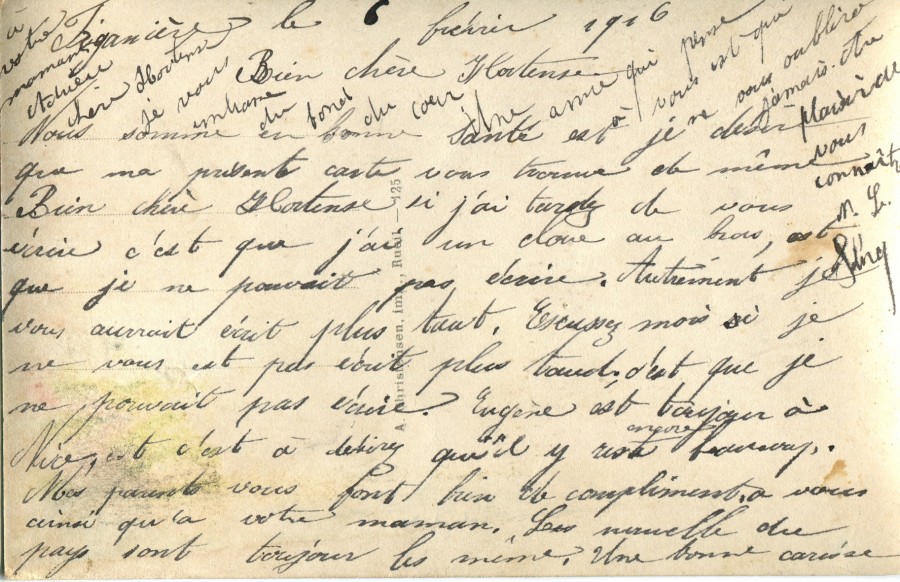 Figanière le 6 février 1916
Bien chère Hortense
Nous somme en bonne santé est je désir
que ma présente carte vous trouve de même
Bien chère Hortense si j'ai tardez de vous
écrire c'est que j'ai un clou au bras, est
que je ne pouvait pas écrire. Autrement je
vous aurrait écrit plus taut. Excussez mois si je
ne vous est pas écrit plus taud. c'est que je
ne pouvait pas écrire. Eugène est toujour à
Nice, est c'est à désirez qu'il y reste encore beaucoup.
Mes parents vous font bien de compliment, a vous
ainsi qu'a votre maman. Les nouvelle du
pays sont toujour les même. Une bonne caresse
à
votre
maman
Adhieu
chère Hortense
je vous
embrasse
du fond
du cœur
Une amie qui pense
à vous est qui
ne vous oublira
jamais. Au
plaisir de
vous
connaître
A. Christensen, imp., Rueil. — 125